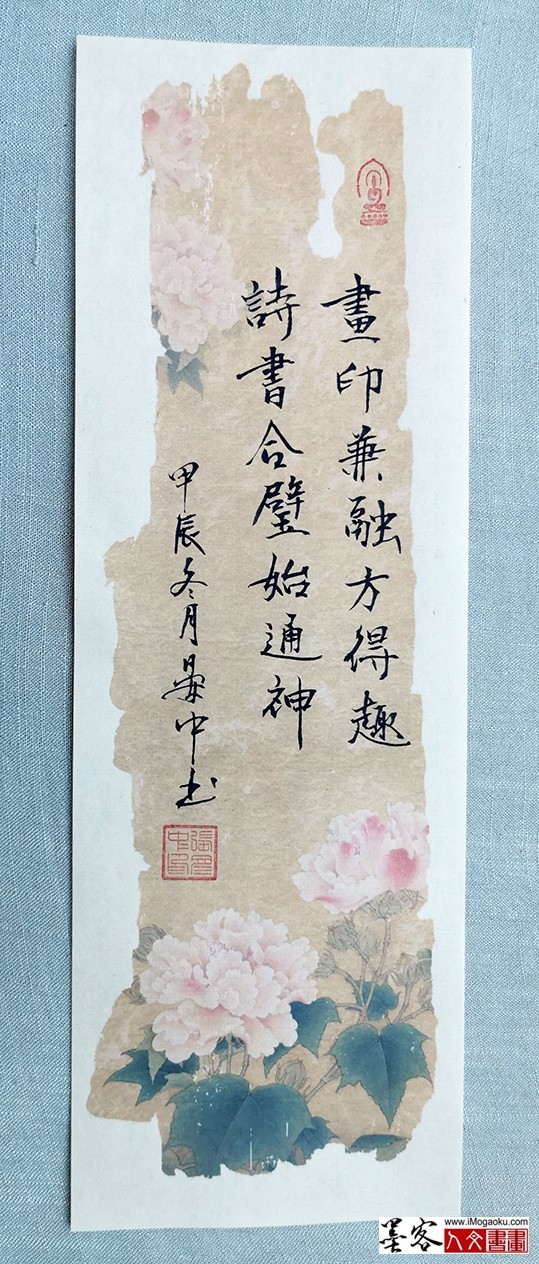 畫印兼融方得趣
詩書合璧始通神
甲辰冬月晏中书
墨客
www.iMogaoku.com
人文書畫